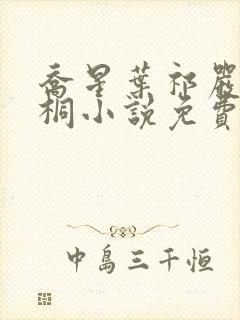 喬星葉祁嚴
桐小說免費
中島三千恒